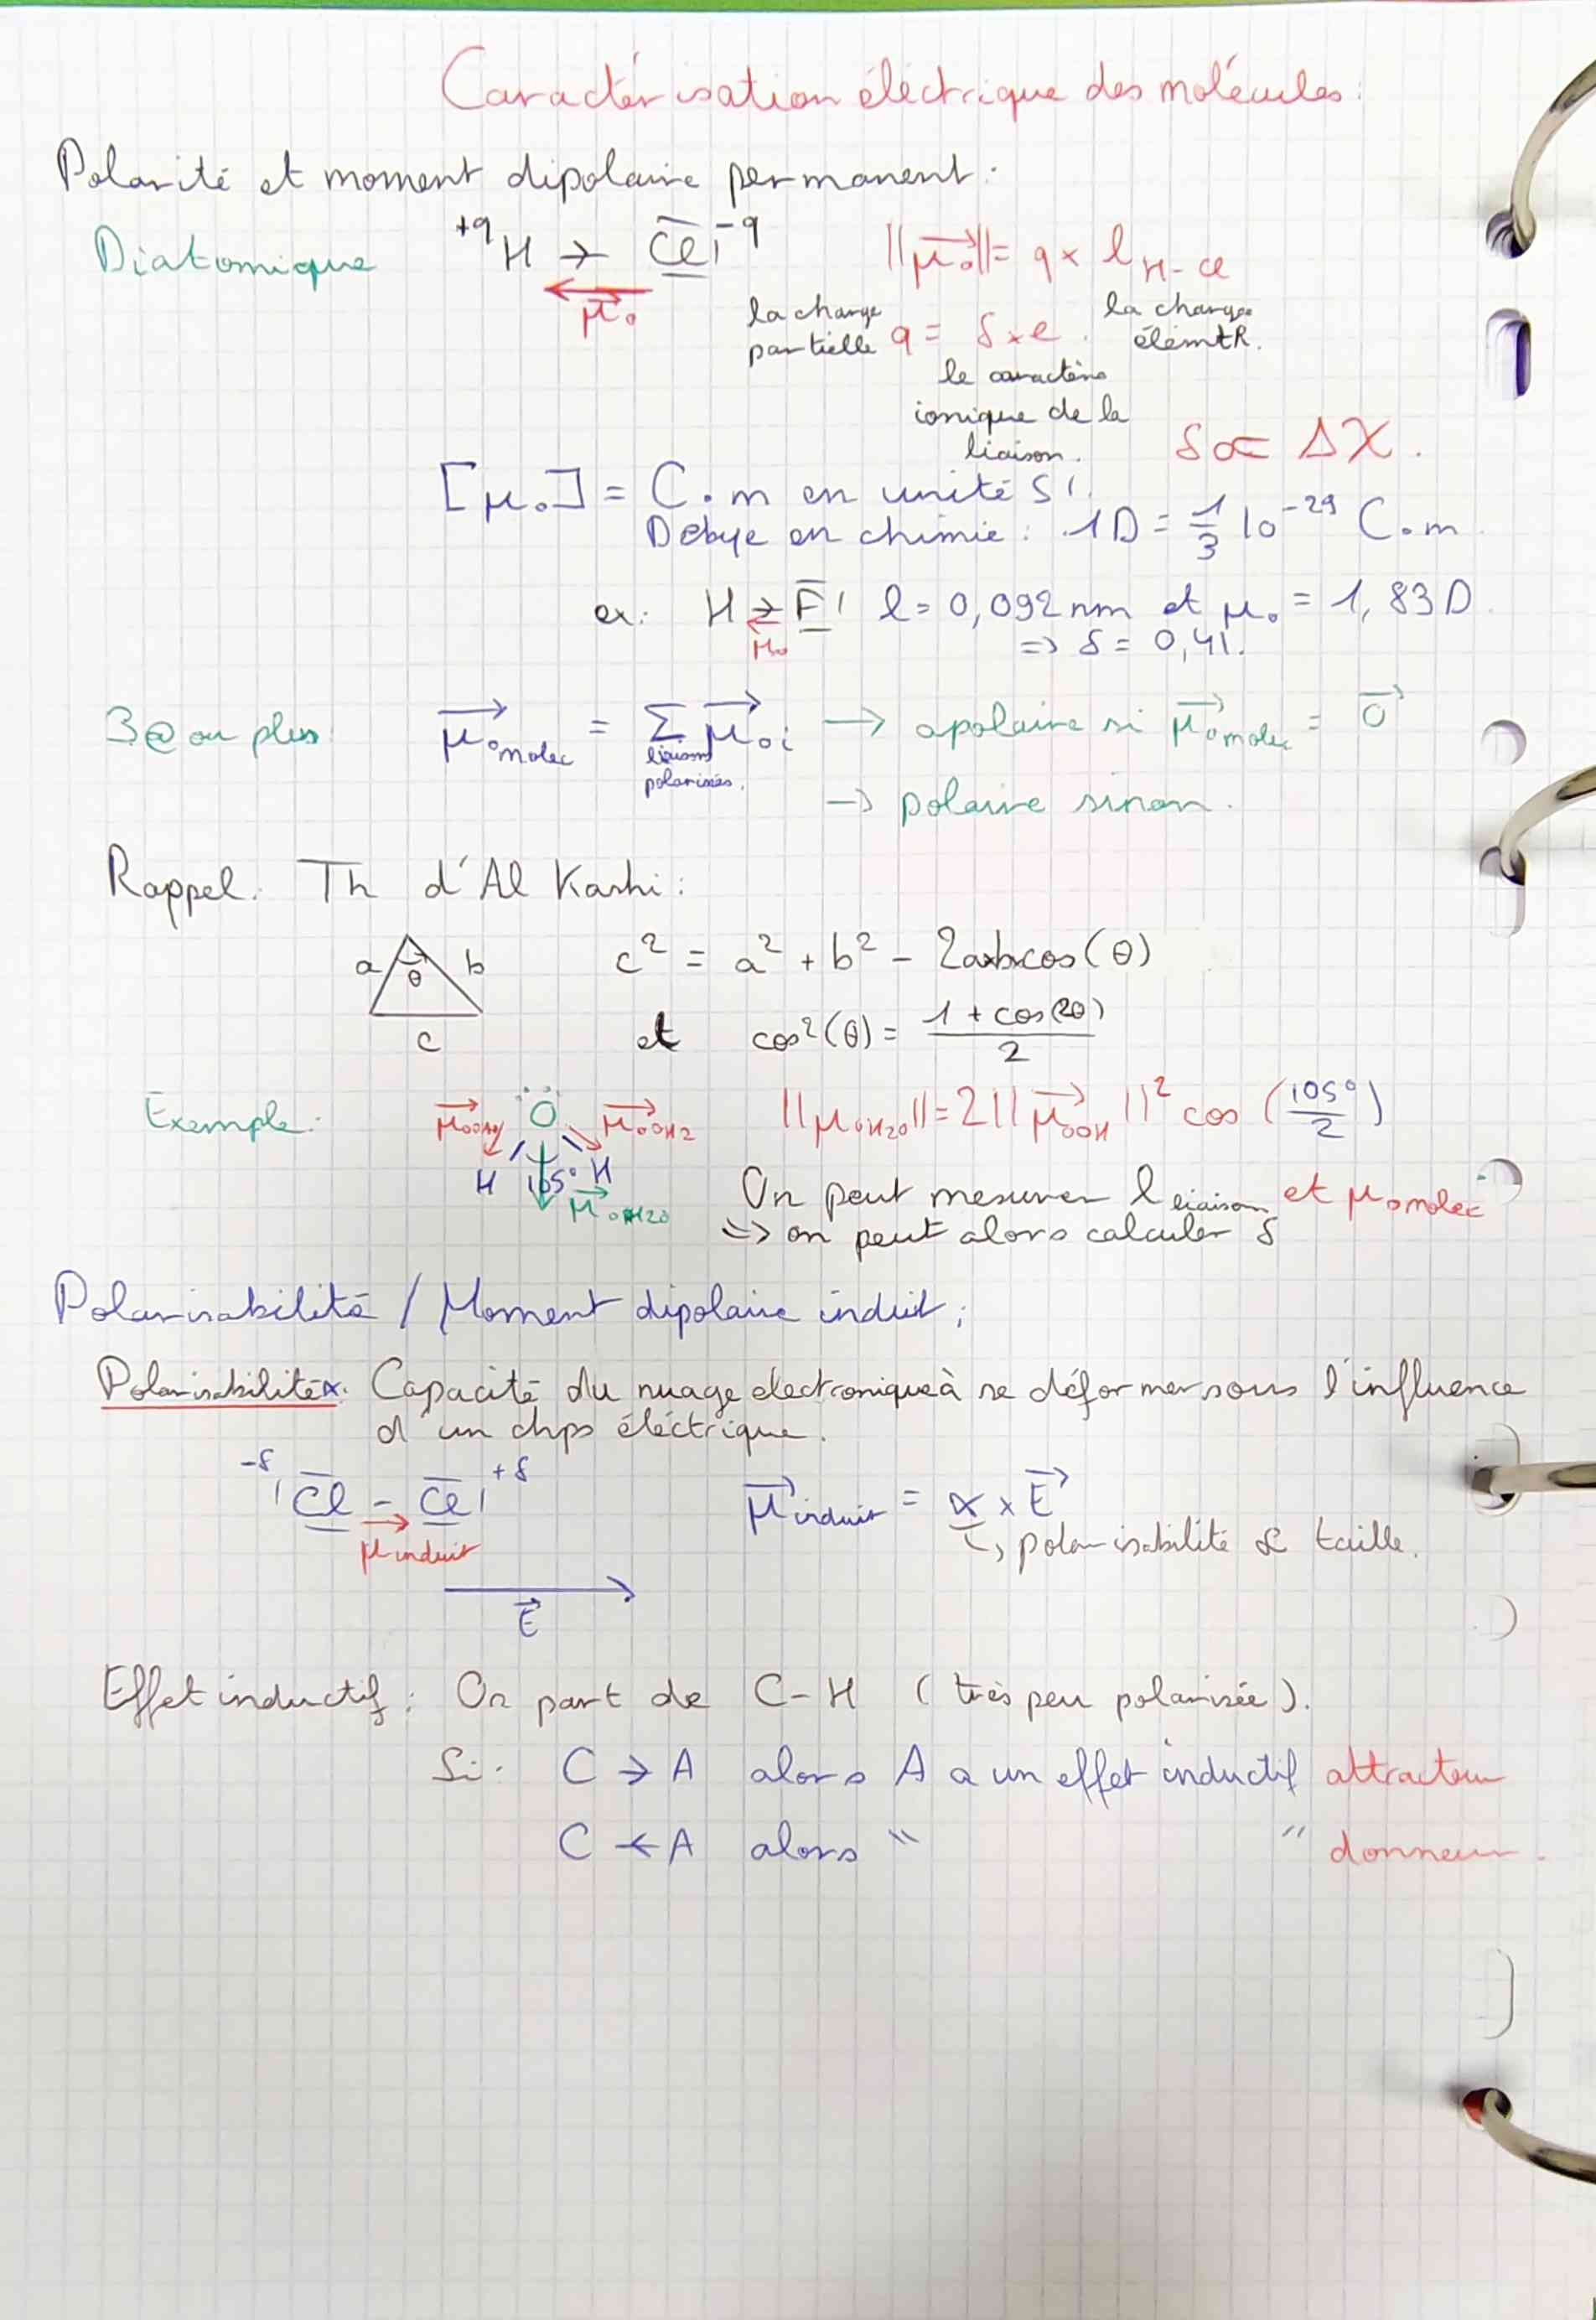 Caractérisation éléctrique des molécules:
Polarité et moment dipolaire permanent:
Diatomique +q H → Cl -q ||μ₀|| = q × l H-Cl
μ₀
la charge partielle q = δ × e. la charge élémtR.
le caractère
ionique de la
liaison. δ ∝ Δχ.
[μ₀] = C.m en unité SI.
Debye en chimie: 1D = 1/3 10⁻²⁹ C.m.
ex: H → F l = 0,092 nm et μ₀ = 1,83D.
μ₀ => δ = 0,41.
3@ ou plus: μ₀molec = Σ μ₀i → apolaire si μ₀molec = 0
liaisons
polarisées.
→ polaire sinon.
Rappel: Th d'Al Kashi:
a θ b c² = a² + b² - 2a×b×cos(θ)
c et cos²(θ) = (1 + cos(2θ))/2
Exemple: μ₀OH1 O μ₀OH2 ||μ₀H2O|| = 2||μ₀OH||² cos (105°/2)
H 105° H
μ₀H2O
On peut mesurer l liaison et μ₀molec
=> on peut alors calculer δ
Polarisabilité / Moment dipolaire induit:
Polarisabilité α: Capacité du nuage électronique à se déformer sous l'influence
d'un chps éléctrique.
-δ Cl - Cl +δ μinduit = α × E
μinduit ↳ polarisabilité ∝ taille.
E
Effet inductif: On part de C-H (très peu polarisée).
Si: C → A alors A a un effet inductif attracteur
C ← A alors " " donneur.